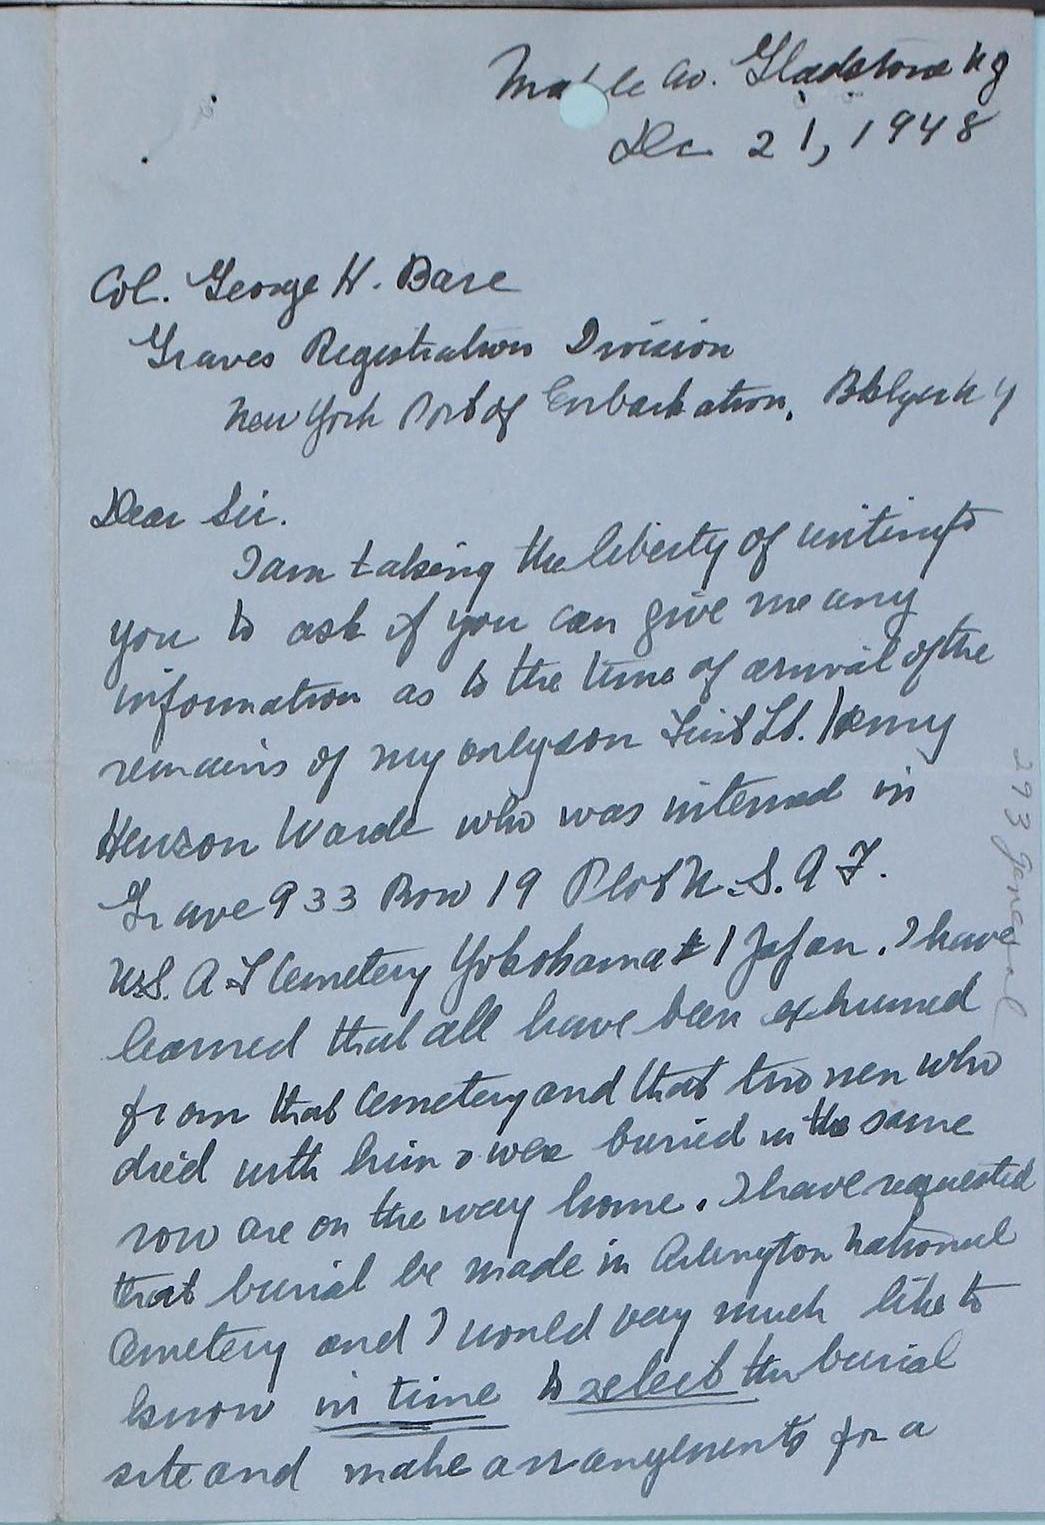 Maple Av. Gladstone NJ
Dec 21, 1948
Col. George H. Bare
Graves Registration Division
New York Port of Embarkation, Bklyn N Y
Dear Sir.
I am taking the liberty of writing to
you to ask if you can give me any
information as to the time of arrival of the
remains of my only son First Lt. Henry
Henson Warde who was interned in
Grave 933 Row 19 Plot U.S.A.F.
U.S.A F Cemetery Yokohama #1 Japan. I have
learned that all have been exhumed
from that Cemetery and that two men who
died with him & were buried in the same
row are on the way home. I have requested
that burial be made in Arlington National
Cemetery and I would very much like to
know in time to select the burial
site and make arrangements for a
293 General